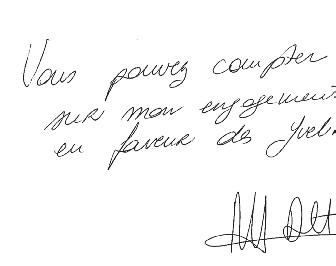 Vous pouvez compter
sur mon engagement
en faveur des Yveli